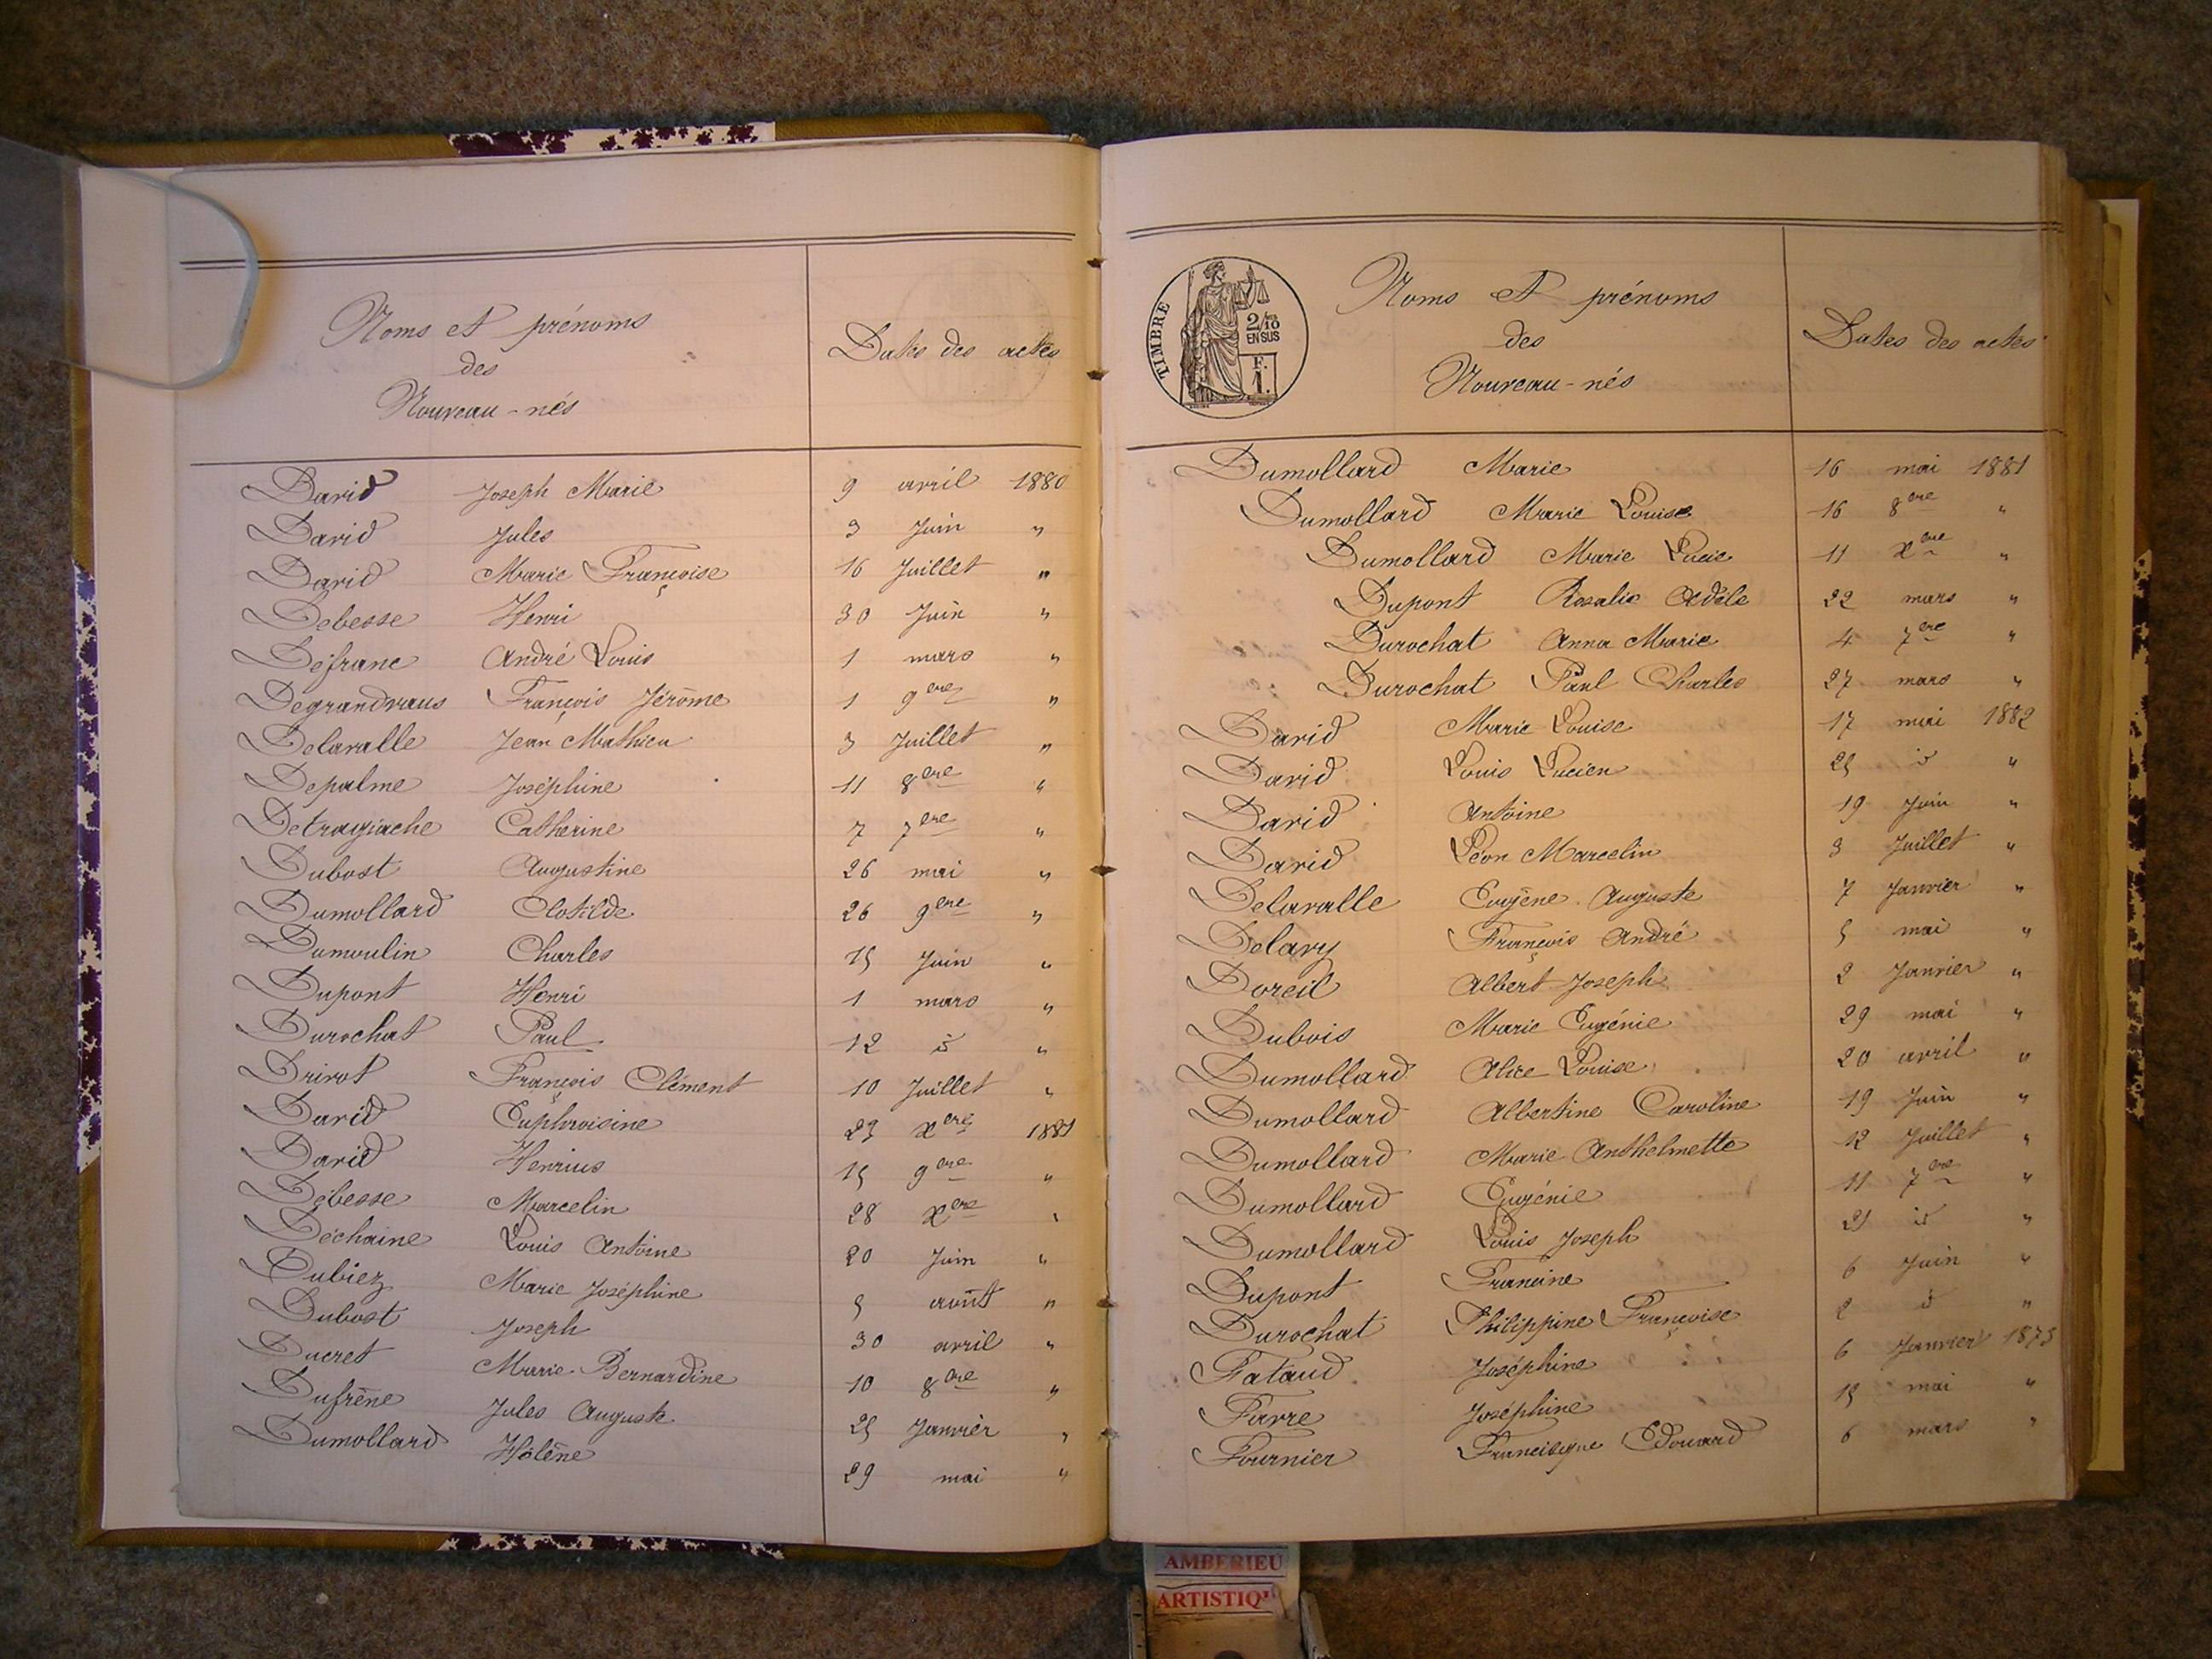 Noms et prénoms
des
Nouveau-nés
Dates des actes
David Joseph Marie 9 avril 1880
David Jules 3 Juin "
David Marie Françoise 16 Juillet "
Debesse Henri 30 Juin "
Defranc André Louis 1 mars "
Degrandvaus François Jérôme 1 9bre "
Delavalle Jean Mathieu 3 Juillet "
Depalme Joséphine 11 8bre "
Detragiache Catherine 7 7bre "
Dubost Augustine 26 mai "
Dumollard Clotilde 26 9bre "
Dumoulin Charles 15 Juin "
Dupont Henri 1 mars "
Durochat Paul 12 id "
Drivot François Clément 10 Juillet "
David Euphroisine 23 Xbre 1881
David Henrius 15 9bre "
Debesse Marcelin 28 Xbre "
Dechaine Louis Antoine 20 Juin "
Dubiez Marie Joséphine 5 août "
Dubost Joseph 30 avril "
Ducret Marie Bernardine 10 8bre "
Dufrène Jules Auguste 25 Janvier "
Dumollard Hélène 29 mai "
TIMBRE
2/10
EN SUS
F.
1.
Noms et prénoms
des
Nouveau-nés
Dates des actes
Dumollard Marie 16 mai 1881
Dumollard Marie Louise 16 8bre "
Dumollard Marie Lucie 11 Xbre "
Dupont Rosalie Adèle 22 mars "
Durochat Anna Marie 4 7bre "
Durochat Paul Charles 27 mars "
David Marie Louise 17 mai 1882
David Louis Lucien 25 id "
David Antoine 19 Juin "
David Léon Marcelin 3 Juillet "
Delavalle Eugène Auguste 7 Janvier "
Delavy François André 5 mai "
Doreil Albert Joseph 2 Janvier "
Dubois Marie Eugénie 29 mai "
Dumollard Alice Louise 20 avril "
Dumollard Albertine Caroline 19 Juin "
Dumollard Marie Anthelmette 12 Juillet "
Dumollard Eugénie 11 7bre "
Dumollard Louis Joseph 21 id "
Dupont Francine 6 Juin "
Durochat Philippine Françoise 2 id "
Fataud Joséphine 6 Janvier 1873
Favre Joséphine 15 mai "
Fournier Francisque Edouard 6 mars "
AMBERIEU
ARTISTIQU